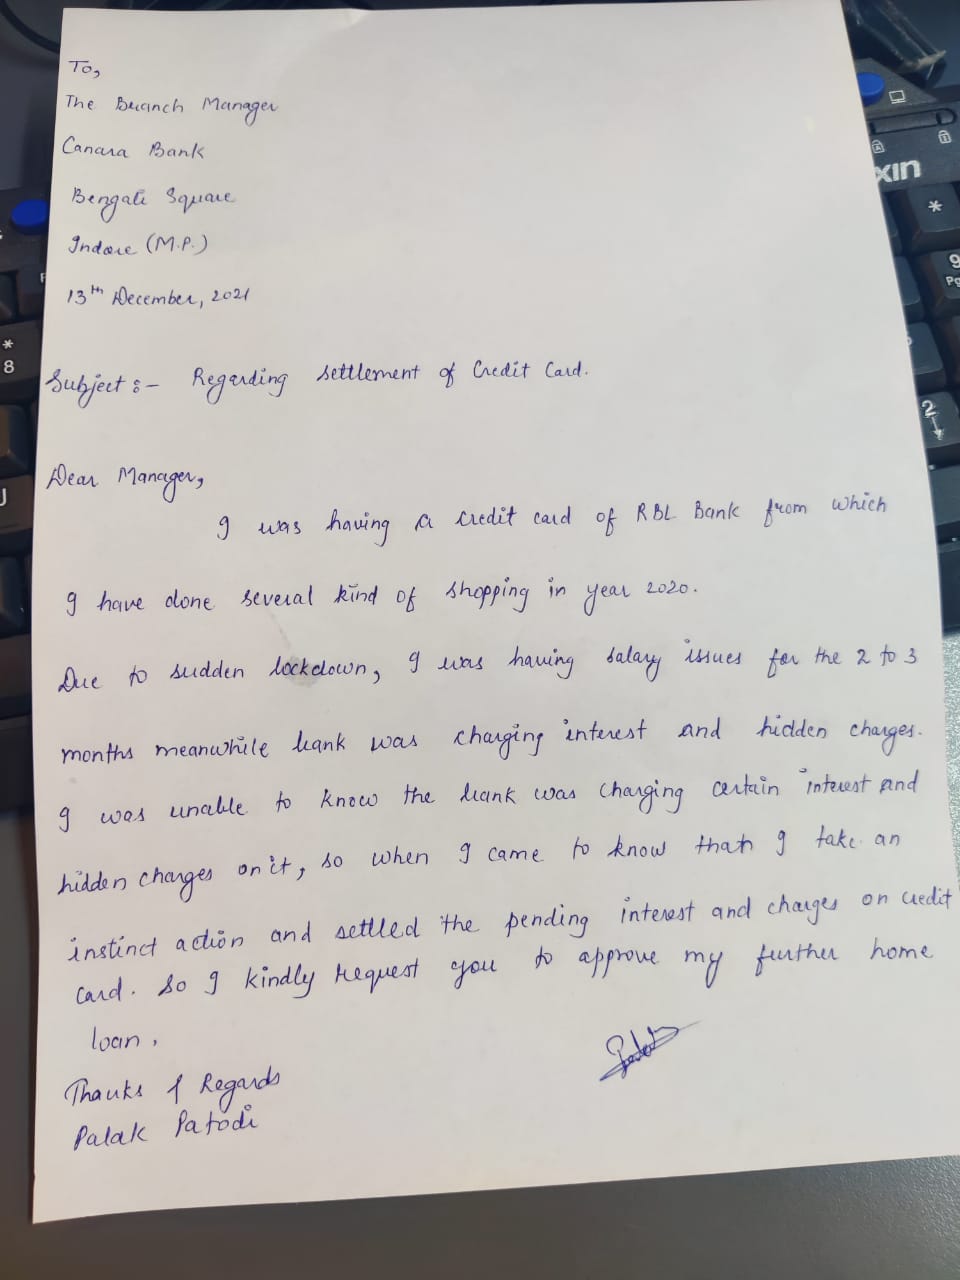 To,
The Branch Manager
Canara Bank
Bengali Square
Indore (M.P.)
13th December, 2021
Subject :- Regarding settlement of Credit Card.
Dear Manager,
I was having a credit card of RBL Bank from which
I have done several kind of shopping in year 2020.
Due to sudden lockdown, I was having salary issues for the 2 to 3
months meanwhile bank was charging interest and hidden charges.
I was unable to know the bank was charging certain interest and
hidden charges on it, so when I came to know that I take an
instinct action and settled the pending interest and charges on credit
card. So I kindly request you to approve my further home
loan.
Thanks & Regards
Palak Patodi
xin
*
8
J
9
Pg
2